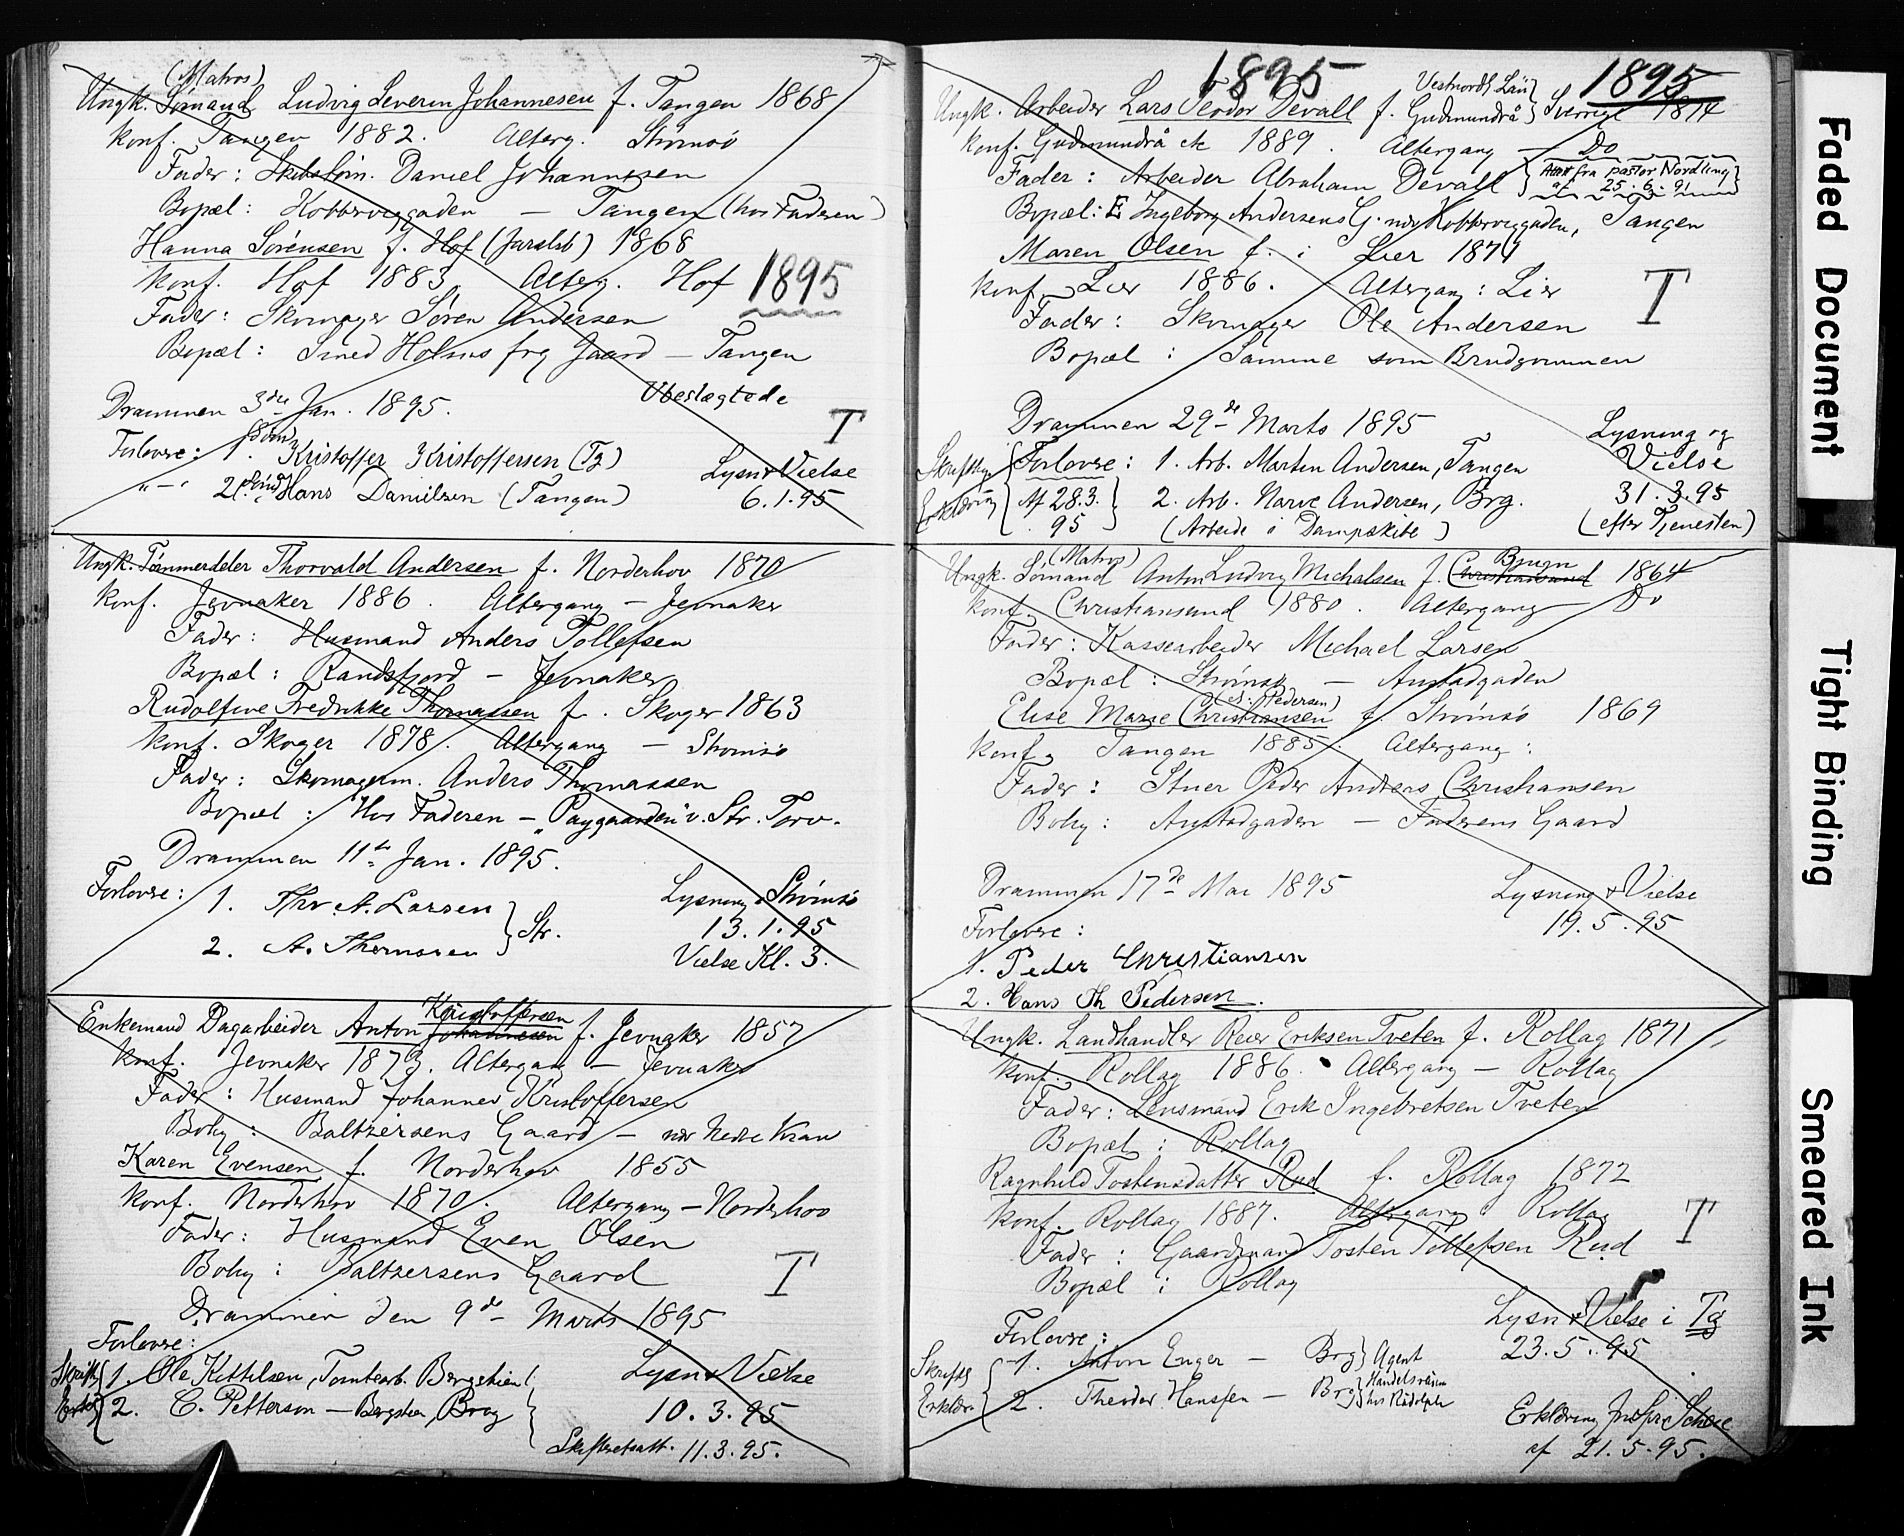 (Matros)
Ungk. Sømand Ludvig Severin Johannesen f. Tangen 1868
konf. Tangen 1882. Alterg. Strømsö
Fader: Skibstøm. Daniel Johannesen
Bopæl: Kobbervigaden — Tangen (hos Faderen)
Hanna Sørensen f. Hof (Jarlsb) 1868
konf. Hof 1883 Alterg. Hof 1895
Fader: Skomager Søren Andersen
Bopæl: Smed Holms Gaard — Tangen
Ubeslægtede
Drammen 3die Jan. 1895.
T
Forlovere: 1. Kristoffer Kristoffersen (Tg)
Lysn & Vielse
"—" 2. Hans Danielsen (Tangen)
6.1.95
Ungk. Tømmerdeler Thorvald Andersen f. Norderhov 1870
konf. Jevnaker 1886. Altergang — Jevnaker
Fader: Husmand Anders Tollefsen
Bopæl: Randsfjord — Jevnaker
Rudolfine Fredrikke Thomassen f. Skoger 1863
konf. Skoger 1878. Altergang — Strømsö
Fader: Skomagerm. Anders Thomassen
Bopæl: Hos Faderen — "Paygaarden" v. Str. Torv.
Drammen 11te Jan. 1895.
Forlovere:
1. Thv. A. Larsen
2. A. Thomasen
} Str.
Lysning Strømsö
13.1.95
Vielse Kl. 3.
Kristoffersen
Enkemand Dagarbeider Anton Johannesen f. Jevnaker 1857
konf. Jevnaker 1873. Altergang — Jevnaker
Fader: Husmand Johannes Kristoffersen
Bolig: Baltzersens Gaard — nær Nedre Kran
Karen Evensen f. Norderhov 1855
konf. Norderhov 1870. Altergang — Norderhov
Fader: Husmand Even Olsen
Bolig: Baltzersens Gaard
T
Drammen den 9de Marts 1895
Forlovere:
Skriftl. 1. Ole Kittilsen, Tomtearb. Bergstien
Erklær 2. C. Petterson — Bergstien, Brag
Lysn & Vielse
10.3.95
Skifteretsatt. 11.3.95.
1895
1895
Vestnordl. Län
Ungk. Arbeider Lars Teodor Devall f. Gudmundrå } Sverrige 1874
konf. Gudmundrå etc 1889. Altergang — Do
Fader: Arbeider Abraham Devall
Attst fra pastor Nordling
af 25.6.91
Bopæl: E Ingeborg Andersens G. nær Kobbervigaden, Tangen
Maren Olsen f. i Lier 1871
konf. Lier 1886. Altergang: Lier
T
Fader: Skomager Ole Andersen
Bopæl: Samme som Brudgommen
Drammen 29de Marts 1895
Lysning og
Vielse
31.3.95
(efter Tjenesten)
Skriftlig
Erklæring
Af 28.3.
95
Forlovere: 1. Arb. Martin Andersen, Tangen
2. Arb. Narve Andersen, Brg.
(Arbeide i Dampskibe)
(Matros)
Bjugn
Ungk. Sømand Anton Ludvig Michalsen f. Christiansund 1864
konf. Christiansund 1880. Altergang — Do
Fader: Kassearbeider Michael Larsen
Bopæl: Strömsö — Austadgaden
Pedersen)
Elise Marie Christiansen f. Strömsö 1869
konf. Tangen 1885. Altergang:
Fader: Stuer Peder Andreas Christiansen
Bolig: Austadgaden — Faderens Gaard
Drammen 17de Mai 1895
Lysning & Vielse
19.5.95
Forlovere:
1. Peder Christiansen
2. Hans Th Pedersen.
Ungk. Landhandler Reier Eriksen Tveten f. Rollag 1871
konf. Rollag 1886. Altergang — Rollag
Fader: Lensmand Erik Ingebretsen Tveten
Bopæl: Rollag
Ragnhild Tostensdatter Rud f. Rollag 1872
konf. Rollag 1887. Altergang: Rollag
T
Fader: Gaardmand Tosten Tollefsen Rud
Bopæl i Rollag
Lysn & Vielse i Tg
23.5.95
Forlovere:
Skriftl
Erklær.
1. Anton Enger — Brg } Agent
2. Theodor Hansen — Brg } Handelsreisen
hos Rudolph
af 21.5.95.
Faded Document
Tight Binding
Smeared Ink